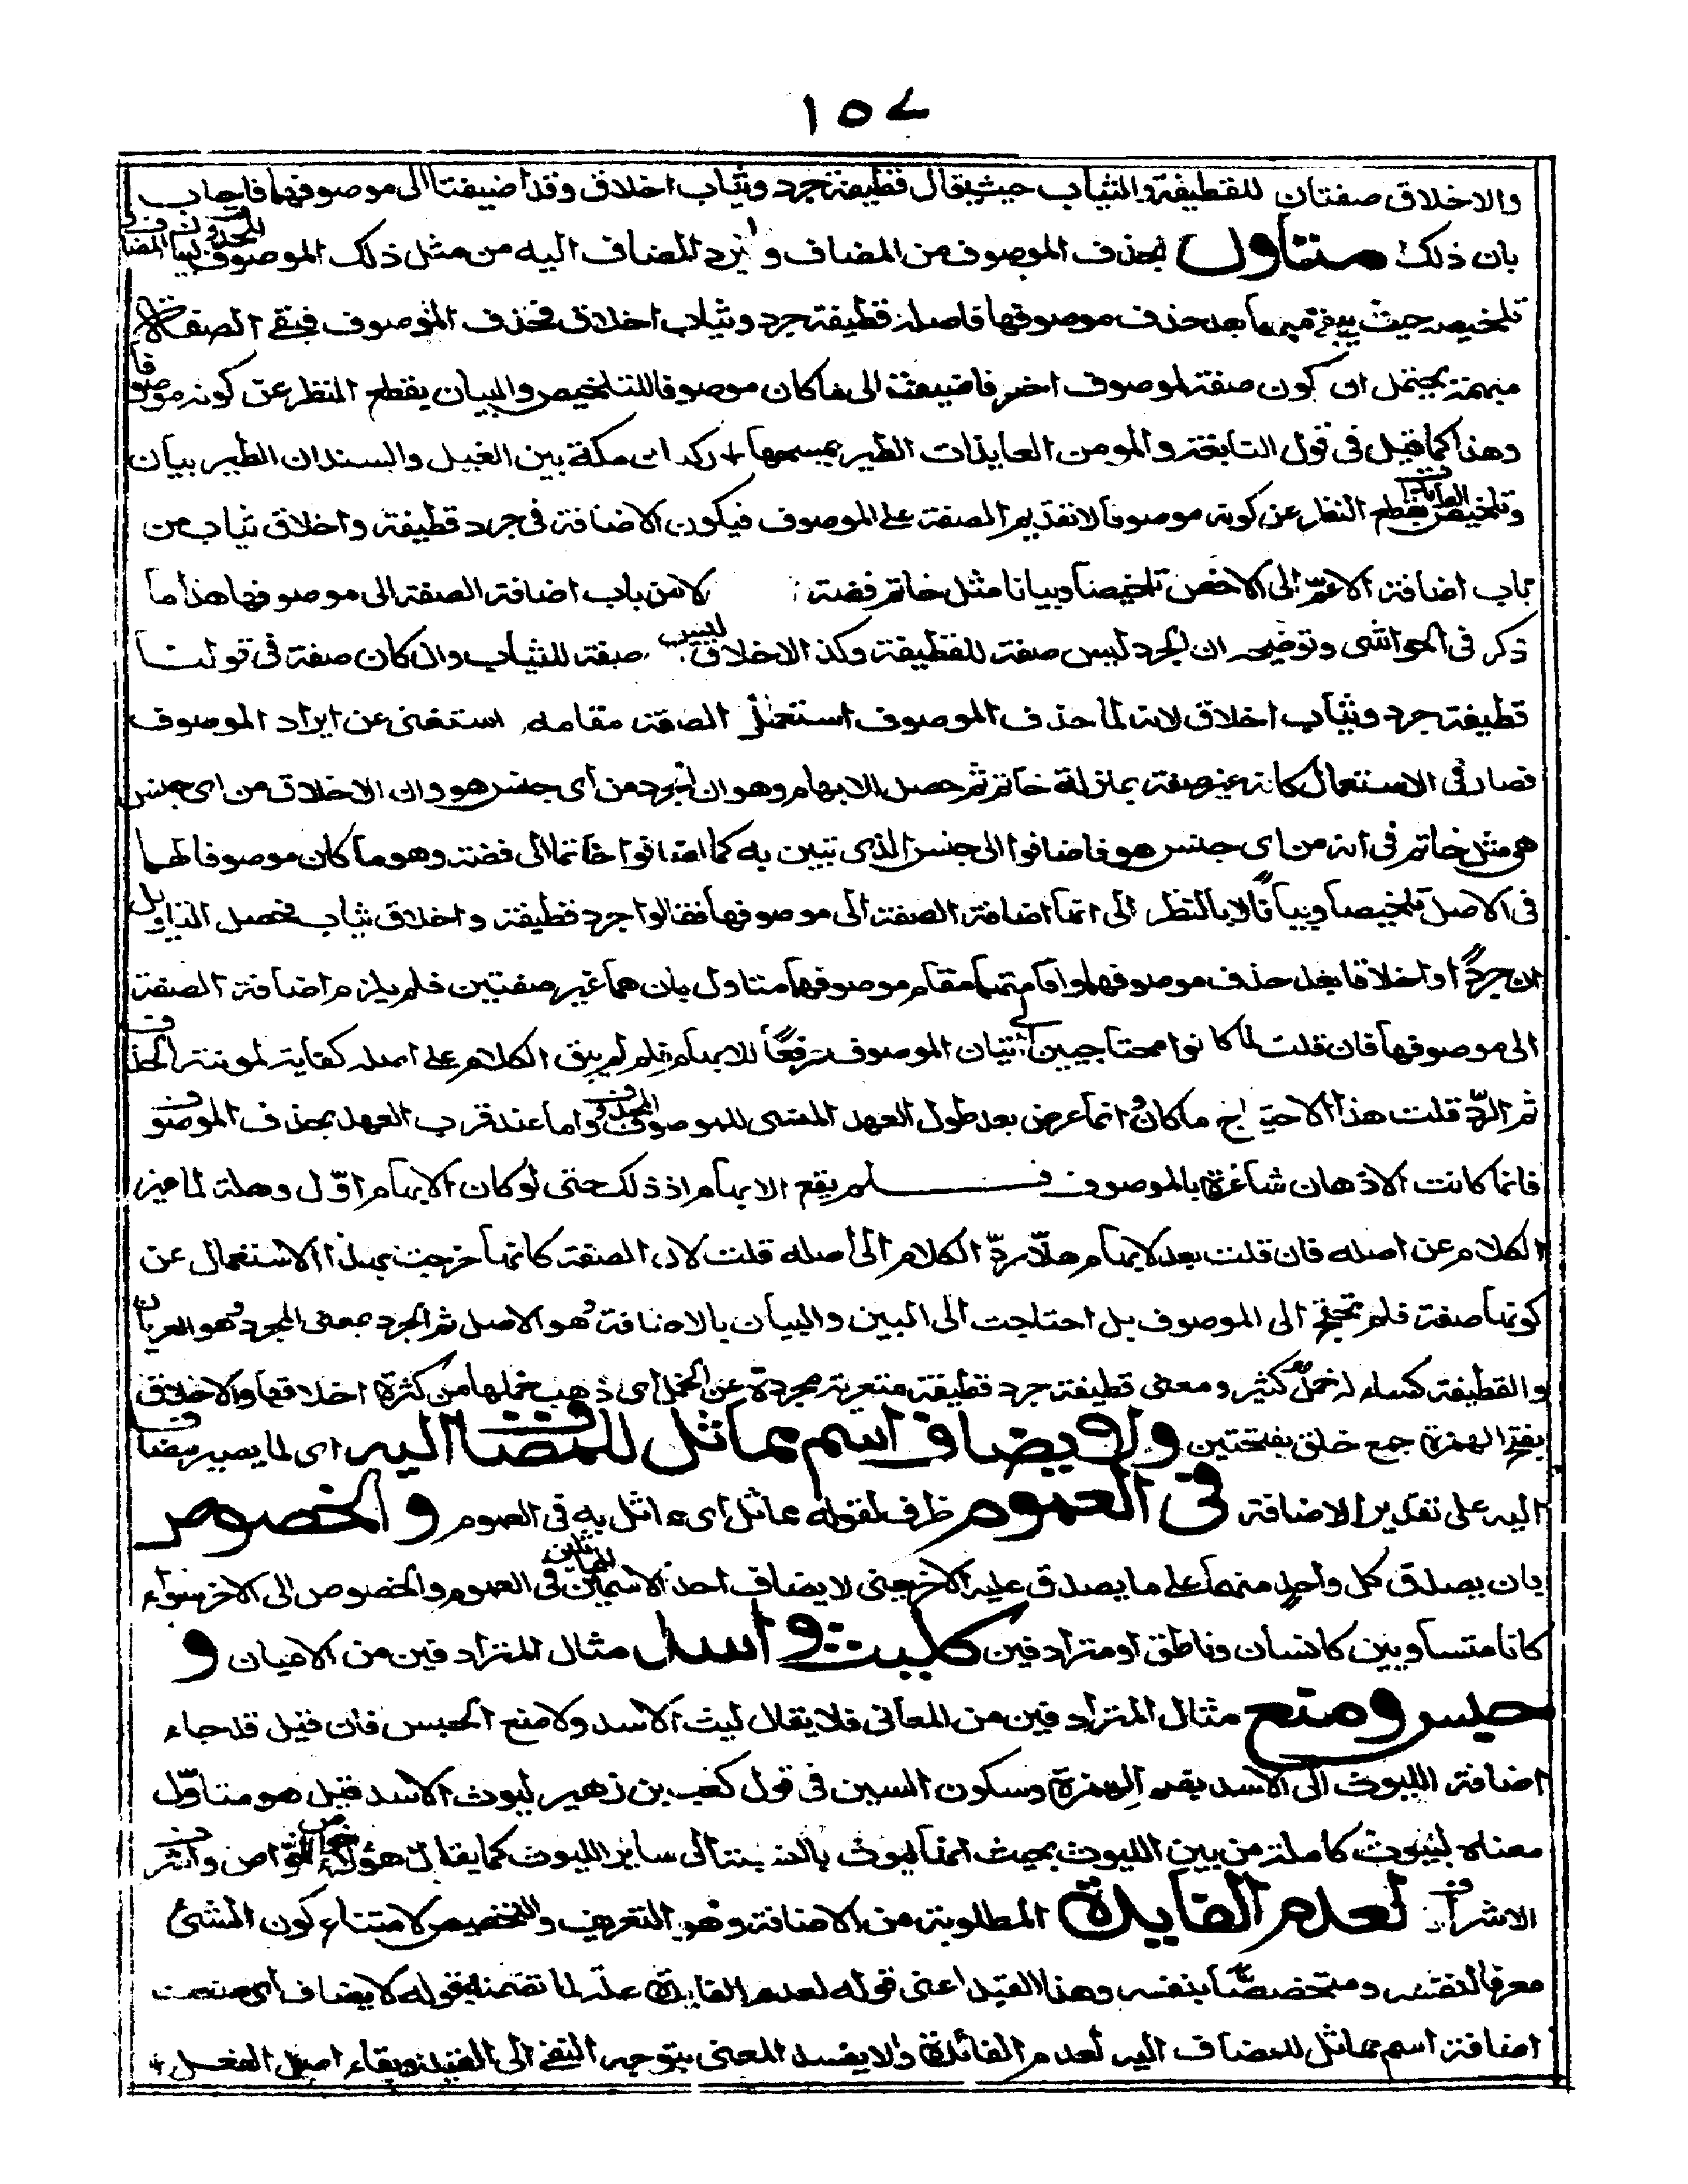 ١٥٧
والاخلاق صفتان للقطيفة والثياب حيث يقال قطيفة جرد وثياب اخلاق وقد اضيفتا الى موصوفهما فاجاب
بان ذلك متاول بحذف الموصوف من المضاف و ايرد المضاف اليه من مثل ذلك الموصوف المحذوف لبيان المضاف
تلخيصه حيث بعد حذف موصوفها فاصله قطيفة جرد وثياب اخلاق فحذف الموصوف فبقى الصفة
مبهمة يحتمل ان كون صفة لموصوف اخر فاضيفت الى ما كان موصوفا للتلخيص والبيان بقطع النظر عن كونه موصوفا
وهذا كما قيل فى قول النابغة والمومن العايذات الطير يمسحها ركبان مكة بين الغيل والسند ان الطير بيان
وتلخيص العايذات بقطع النظر عن كونه موصوفا لا تقديم الصفة على الموصوف فيكون الاضافة فى جرد قطيفة واخلاق ثياب من
باب اضافة الاعم الى الاخص تلخيصا وبيانا مثل خاتم فضة لا من باب اضافة الصفة الى موصوفها هذا ما
ذكر فى الحواشى وتوضيحه ان الجرد ليس صفة للقطيفة وكذا الاخلاق ليس صفة للثياب وان كان صفة فى قولنا
قطيفة جرد وثياب اخلاق لانه لما حذف الموصوف استعمل الصفة مقامه استغنى عن ايراد الموصوف
فصار فى الاستعمال كانه غير صفة بمنزلة خاتم ثم حصل الابهام وهو ان الجرد من اى جنس هو وان الاخلاق من اى جنس
هى مثل خاتم فى انه من اى جنس هو فاضافوا الى جنس الذى تبين به كما اضافوا خاتما الى فضة وهو ما كان موصوفا لهما
فى الاصل تلخيصا وبيانا لا بالنظر الى انها اضافة الصفة الى موصوفها فقالوا جرد قطيفة واخلاق ثياب فحصل التاويل
ان جردا او اخلاقا بعد حذف موصوفهما واقامتهما مقام موصوفهما متاول بان هما غير صفتين فلم يلزم اضافة الصفة
الى موصوفها فان قلت لما كانوا محتاجين الى اتيان الموصوف رفعا للابهام فلم لم يبق الكلام على اصله كفاية لمونة الحذف
ثم الرد قلت هذا الاحتياج ما كان وانما عرض بعد طول العهد المنسى للموصوف المحذوف واما عند قرب العهد بحذف الموصوف
فانما كانت الاذهان شاغرة بالموصوف فلم يقع الابهام اذ ذلك حتى لو كان الابهام اول وهلة لما غير
الكلام عن اصله فان قلت بعد الابهام هلا رد الكلام الى اصله قلت لان الصفة كانها خرجت بهذا الاستعمال عن
كونها صفة فلم تحتج الى الموصوف بل احتاجت الى البين والبيان بالاضافة هو الاصل ثم الجرد بمعنى المجرد وهو العريان
والقطيفة كساء له خمل كثير ومعنى قطيفة جرد قطيفة متعرية مجردة عن الخمل اى ذهب خملها من كثرة اخلاقها والاخلاق
بفتح الهمزة جمع خلق بفتحتين ولا يضاف اسم مماثل للمضاف اليه اى لما يصير مضاف
اليه على تقدير الاضافة فى العموم ظرف لقوله مماثل اى مماثل به فى العموم والخصوص
بان يصدق كل واحد منهما على ما يصدق عليه الاخر يعنى لا يضاف احد الاسمين المماثلين فى العموم والخصوص الى الاخر سواء
كانا متساويين كانسان وناطق او مترادفين كليث واسد مثال المترادفين من الاعيان و
حبس ومنع مثال المترادفين من المعانى فلا يقال ليث الاسد ولا منع الحبس فان قيل قد جاء
اضافة الليوث الى الاسد بضم الهمزة وسكون السين فى قول كعب بن زهير ليوث الاسد قيل هو متاول
معناه ليوث كاملة من بين الليوث بحيث انها ليوث بالنسبة الى ساير الليوث كما يقال هؤلاء خواص الخواص واشرف
الاشراف لعدم الفايدة المطلوبة من الاضافة وهو التعريف والتخصيص لامتناع كون الشئ
معرفا لنفسه ومتخصصا بنفسه وهذا القيد اعنى قوله لعدم الفايدة علة لما تضمنه قوله لا يضاف اى منعت
اضافة اسم مماثل للمضاف اليه لعدم الفائدة والا يفسد المعنى بتوجه النفى الى القيد وبقاء اصل الفعل